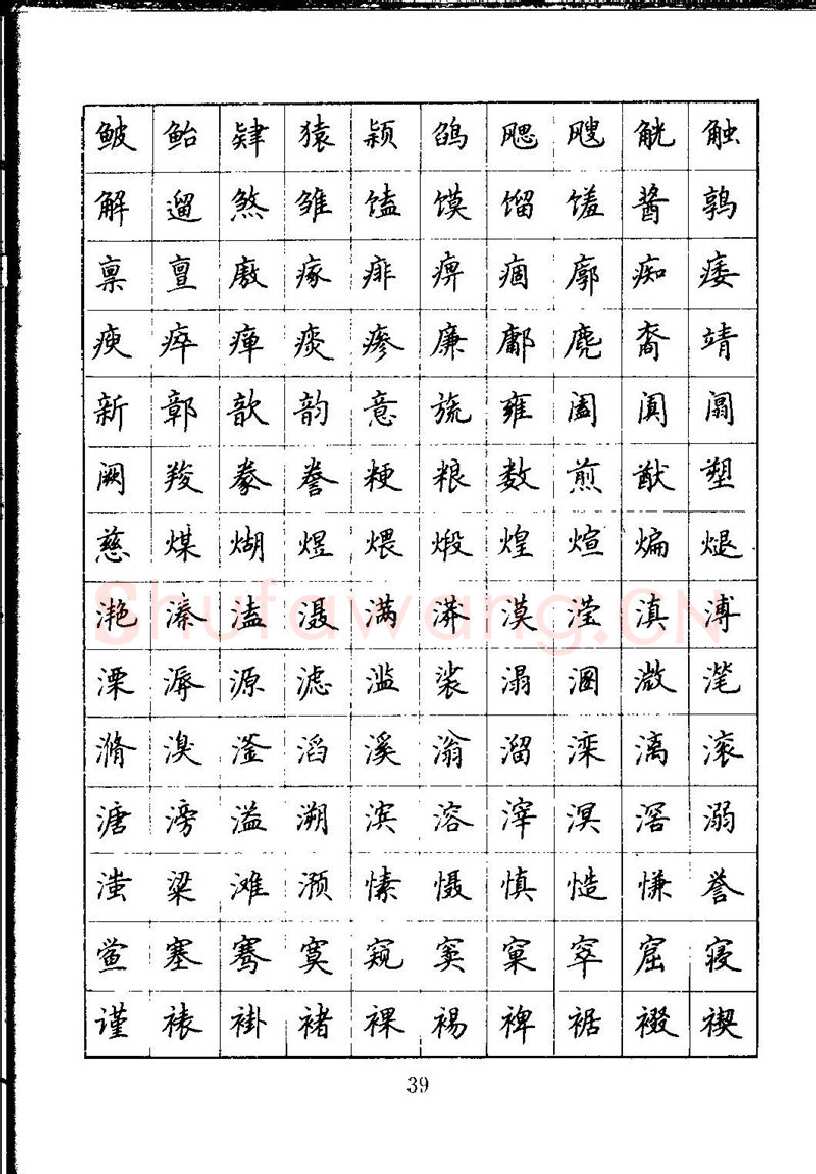 鲅 鲐 肄 猿 颖 鸽 飔 飕 觥 触
解 遛 煞 雏 馌 馍 馏 馐 酱 鹑
禀 亶 廒 瘃 痱 痹 痼 廓 痴 痿
瘐 瘁 瘅 痰 瘆 廉 鄘 麂 裔 靖
新 鄣 歆 韵 意 旒 雍 阖 阗 阘
阙 羧 豢 誊 粳 粮 数 煎 猷 塑
慈 煤 煳 煜 煨 煅 煌 煊 煸 煺
滟 溱 溘 滠 满 漭 漠 滢 滇 溥
溧 溽 源 滤 滥 裟 溻 溷 溦 滗
滫 溴 滏 滔 溪 滃 溜 滦 漓 滚
溏 滂 溢 溯 滨 溶 滓 溟 滘 溺
滍 粱 滩 滪 愫 慑 慎 慥 慊 誉
鲎 塞 骞 寞 窥 窦 窠 窣 窟 寝
谨 裱 褂 褚 裸 裼 裨 裾 裰 禊
39
Shufawang.CN